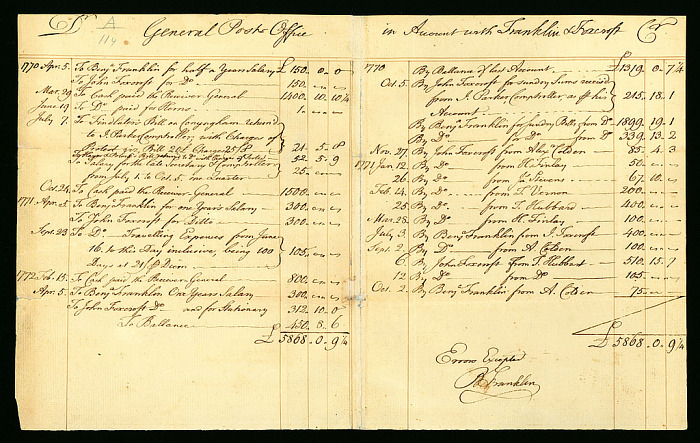 Dr
A
114
General Post Office
1770 Apr. 5. To Benja Franklin for half a Years Salary £ 150. 0. 0
To John Foxcroft for Do 150. — —
Mar. 29 To Cash paid the Receiver General 1400. 10. 10¼
June 19 To Do paid for Horns 1. — —
July 7. To Findlater's Bill on Conyngham return'd
to J. Parker Comptroller, with Charges of
Protest viz. Bill 20£ Charges 25/8 21. 5. 8
52. 5. 9
To Salary for the late Secretary & Comptroller
from July 1. to Oct. 5. one Quarter 25. — —
Oct. 24. To Cash paid the Receiver General 1500. — —
1771 Apr. 5. To Benja Franklin for one Years Salary 300. — —
To John Foxcroft for Ditto 300. — —
Sept. 23 To Do Travelling Expences from June
16. to this Day inclusive, being 100
Days at 21/ ⅌ Diem 105. — —
1772 Feb. 13. To Cash paid the Receiver General 800. — —
Apr. 5. To Benja Franklin One Years Salary 300. — —
To John Foxcroft Do and for Stationary 312. 10. 0
To Ballance £ 450. 8. 6
£ 5868. 0. 9¼
in Account with Franklin & Foxcroft Cr
1770 By Ballance of last Account £1319. 0. 7¼
Oct. 5. By John Foxcroft for sundry Sums receiv'd
from J. Parker Comptroller, as ⅌ his
Account 215. 18. 1
By Benja Franklin for sundry Bills from Do 1899. 19. 1
By Do from Do 339. 13. 2
Nov. 27. By John Foxcroft from Alexr Colden 85. 4. 3
1771 Jan. 12 By Do from H. Finlay 50. — —
26 By Do from Ja. Stevens 67. 10. —
Feb. 14. By Do from T. Vernon 200. — —
25 By Do from T. Hubbard 400. — —
Mar. 28. By Do from H. Finlay 100. — —
July 3. By Benja Franklin from J. Foxcroft 400. — —
Sept. 2. By Do from A. Colden 100. — —
6 By John Foxcroft from T. Hubbart 510. 15. 7
12 By Do from Do 105. — —
Oct. 2. By Benja Franklin from A. Colden 75. — —
£ 5868. 0. 9¼
Errors Excepted
B Franklin